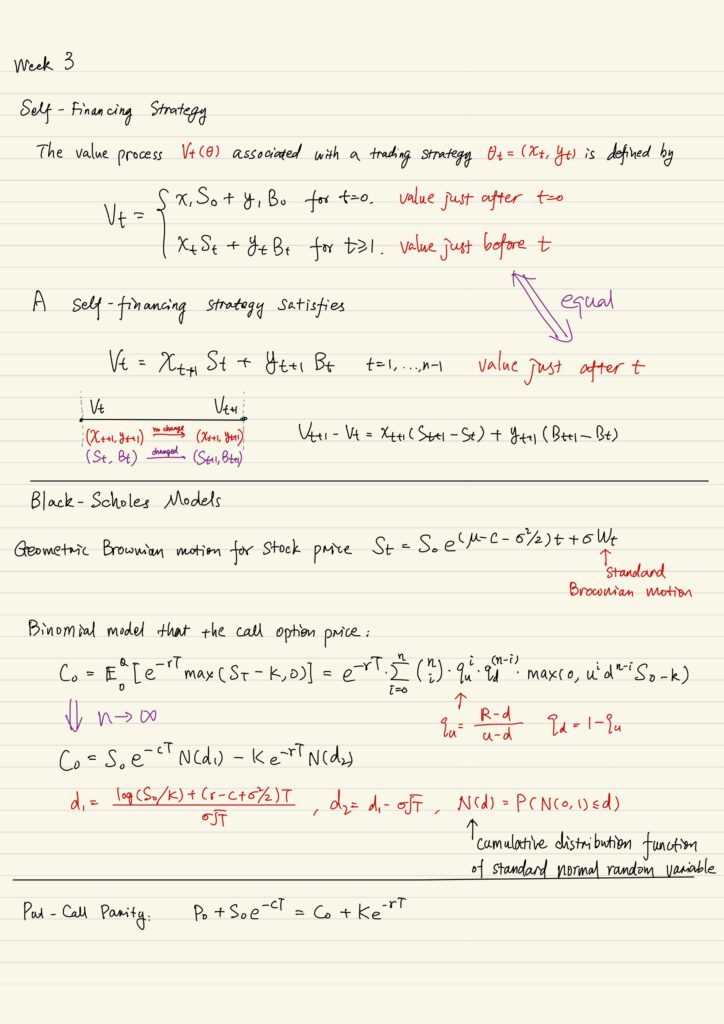 Week 3
Self-Financing Strategy
The value process Vt(θ) associated with a trading strategy θt = (xt, yt) is defined by
Vt = { x₁S₀ + y₁B₀ for t=0. value just after t=0
xtSt + ytBt for t≥1. value just before t
equal
A self-financing strategy satisfies
Vt = xt+1 St + yt+1 Bt t=1,...,n-1 value just after t
Vt Vt+1
(xt+1, yt+1) no change → (xt+1, yt+1)
(St, Bt) changed → (St+1, Bt+1)
Vt+1 - Vt = xt+1(St+1 - St) + yt+1(Bt+1 - Bt)
Black-Scholes Models
Geometric Brownian motion for stock price St = S₀ e^(μ-c-σ²/2)t + σWt
↑ standard
Brownian motion
Binomial model that the call option price:
C₀ = E₀^Q [e^-rT max(ST - K, 0)] = e^-rT · Σ_{i=0}^{n} (n i) · qu^i · qd^(n-i) · max(0, u^i d^n-i S₀ - k)
⇓ n→∞
↑ qu = (R-d)/(u-d) qd = 1-qu
C₀ = S₀e^-cT N(d₁) - Ke^-rT N(d₂)
d₁ = (log(S₀/K) + (r-c+σ²/2)T)/(σ√T) , d₂ = d₁ - σ√T , N(d) = P(N(0,1) ≤ d)
↑ cumulative distribution function
of standard normal random variable
Put-Call Parity: P₀ + S₀e^-cT = C₀ + Ke^-rT